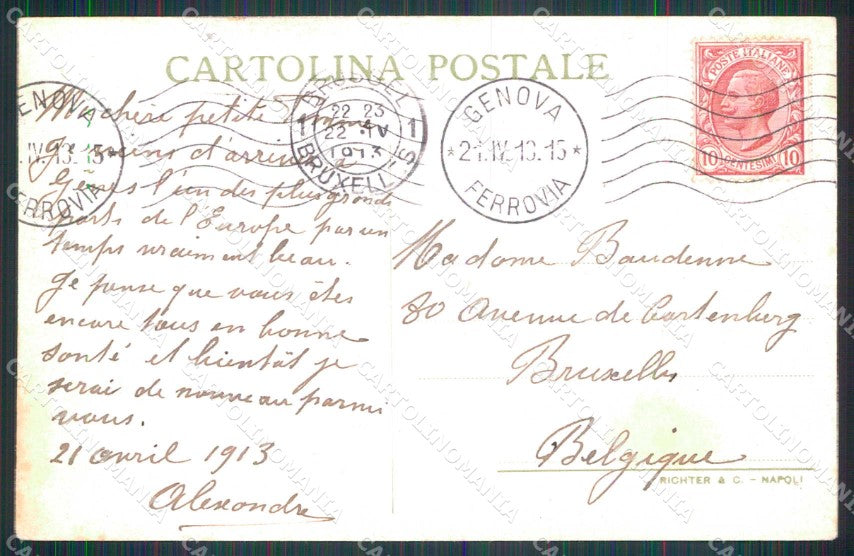 CARTOLINA POSTALE
Ma chère petite femme
Je viens d'arriver à
Gênes l'un des plus grands
ports de l'Europe par un
temps vraiment beau.
Je pense que vous êtes
encore tous en bonne
santé et bientôt je
serai de nouveau parmi
vous.
21 avril 1913
Alexandre
GENOVA
.IV.13.15*
FERROVIA
BRUXELLES
1 22 23 1
22 IV
1913
BRUXELLES
GENOVA
*21.IV.13.15*
FERROVIA
POSTE ITALIANE
10 CENTESIMI 10
Madame Baudenne
80 Avenue de Cortenberg
Bruxelles
Belgique
RICHTER & C. - NAPOLI
CARTOLINOMANIA